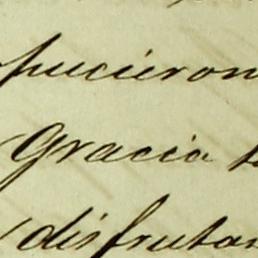 pucieron
Gracia
disfrutan